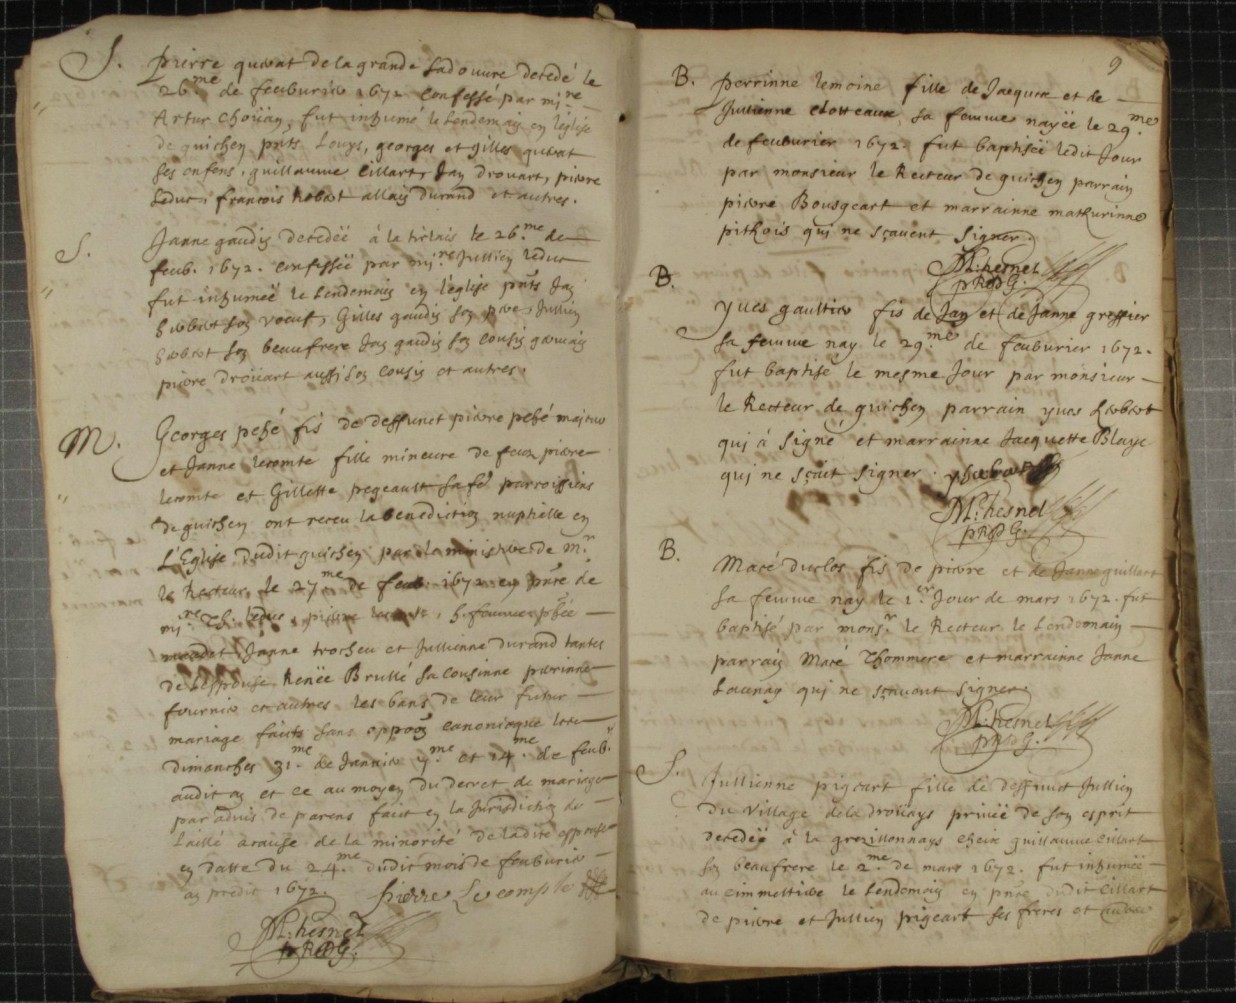 S. Pierre quivat de la grande ladouure decedé le
26.me de feuburier 1672. confessé par mi.re
Artur choüan, fut inhumé le lendemain en l'église
de guichen pnts Louys, georges et gilles quivat
ses enfens, guillaume Eillart, Jan drouart, pierre
Leduc, francois hobert allain durand et autres.
S. Janne gaudin decedëe à la tirlais le 26.me de
feub. 1672. confessëe par mi.re Jullien leduc
fut inhumëe le lendemain en l'église pnts Jan
herbert son voeuf, Gilles gaudin son pere, Jullien
herbert son beaufrere Jan gaudin son cousin germain
pierre droüart aussi son cousin et autres.
M. Georges pehé fis de deffunct pierre pehé majeur
et Janne lecomte fille mineure de feuz pierre
lecomte et Gillette pegeault sa fe. parroissiens
de guichen ont receu la benediction nuptialle en
L'Eglise dudit guichen par le ministere de m.r
le Recteur le 27.me de feub. 1672 en pnce de
mi.re Leduc, pierre
Janne trocheu et Jullienne durand tantes
de l'espouse Renëe Brullé sa cousinne perrinne
fournier et autres les bans de leur futur
mariage faicts sans oppoon canonicque les
dimanches 31.me de Janvier 7.me et 14.me de feub.r
audit an et ce au moyen du decret de mariage
par advis de parens faict en la Jurisdiction de
Laillé acause de la minorité de ladite espouse
en datte du 24.me dudit mois de feuburier
an predit 1672. Pierre Lecompte
M: hesnel
p R D G.
9
B. Perrinne lemoine fille de Jacques et de
Jullienne clotteaux sa femme nayëe le 29.me
de feuburier 1672. fut baptisëe ledit Jour
par monsieur le Recteur de guichen parrain
pierre Bousgeart et marrainne mathurinne
pithois qui ne sçavent signer.
M: hesnel
p R D G.
B. Yves gaultier fis de Jan et de Janne greffier
sa femme nay le 29.me de feuburier 1672.
fut baptisé le mesme Jour par monsieur
le Recteur de guichen parrain yves herbert
qui à signé et marrainne Jacquette Blaye
qui ne sçait signer. y herbert
M: hesnel
p R D G.
B. Macé duclos fis de pierre et de Janne guillart
sa femme nay le 1.er Jour de mars 1672. fut
baptisé par mons.r le Recteur le lendemain
parrain Macé Thommere et marrainne Janne
Launay qui ne sçavent signer
M: hesnel
p R D G.
S. Jullienne pigeart fille de deffunct Jullien
du village de la drouays privëe de son esprit
decedëe à la grezillonnays cheix guillaume Eillart
son beaufrere le 2.me de mars 1672. fut inhumëe
au cimmettiere le lendemain en pnce dudit Eillart
de pierre et Jullien pigeart ses freres et autres